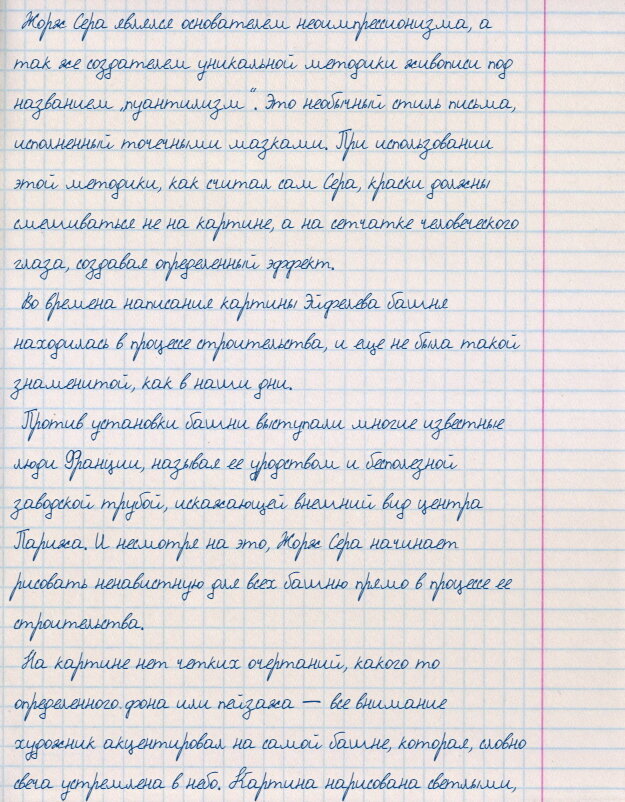 Жорж Сера являлся основателем неоимпрессионизма, а
так же создателем уникальной методики живописи под
названием „пуантилизм“. Это необычный стиль письма,
исполненный точечными мазками. При использовании
этой методики, как считал сам Сера, краски должны
смешиваться не на картине, а на сетчатке человеческого
глаза, создавая определенный эффект.
Во времена написания картины Эйфелева башня
находилась в процессе строительства, и еще не была такой
знаменитой, как в наши дни.
Против установки башни выступали многие известные
люди Франции, называя ее уродством и бесполезной
заводской трубой, искажающей внешний вид центра
Парижа. И несмотря на это, Жорж Сера начинает
рисовать ненавистную для всех башню прямо в процессе ее
строительства.
На картине нет четких очертаний, какого то
определенного фона или пейзажа — все внимание
художник акцентировал на самой башне, которая, словно
свеча устремлена в небо. Картина нарисована светлыми,